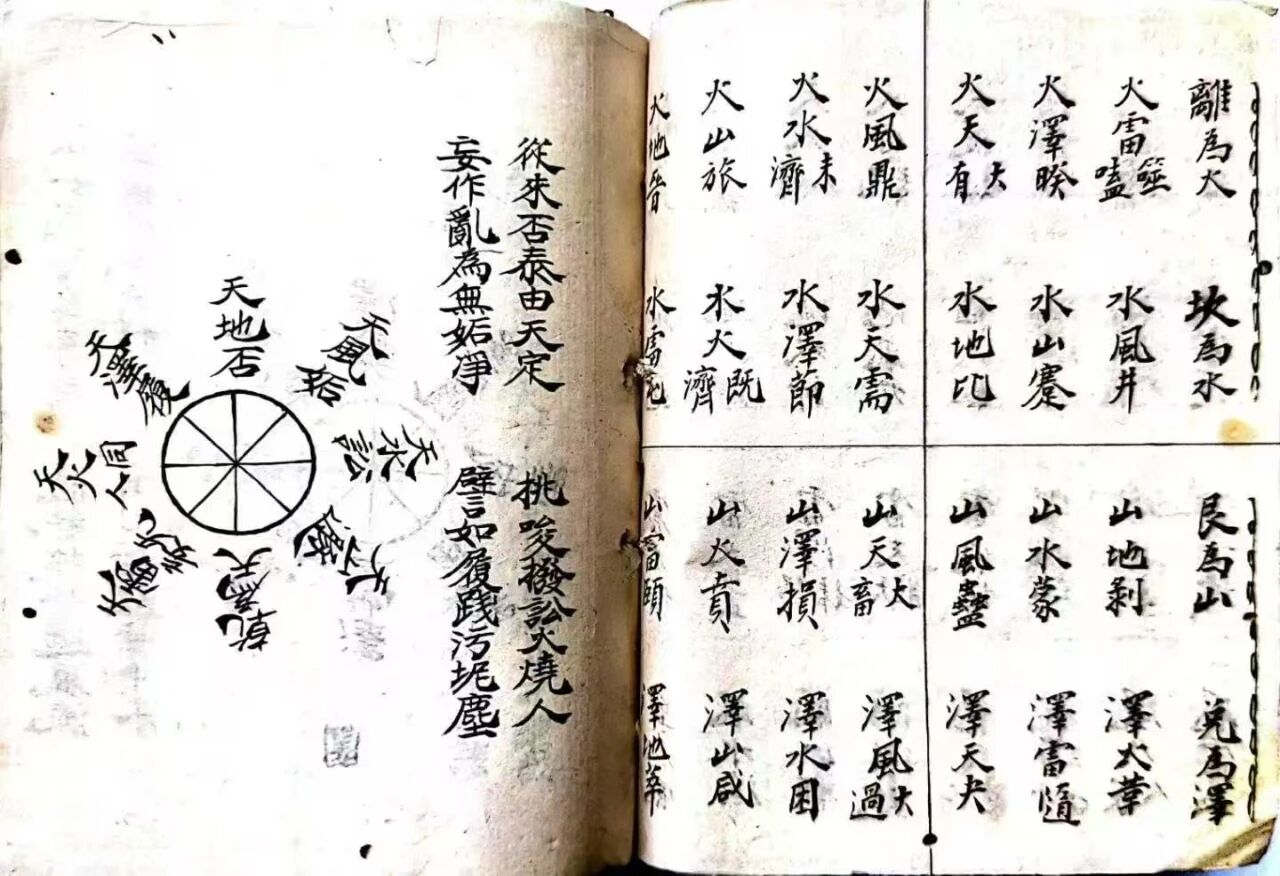 離為火
火雷噬嗑
火澤暌
火天大有
火風鼎
火水未濟
火山旅
火地晉
坎為水
水風井
水山蹇
水地比
水天需
水澤節
水火既濟
水雷屯
艮為山
山地剝
山水蒙
山風蠱
山天大畜
山澤損
山火賁
山雷頤
兌為澤
澤火革
澤雷隨
澤天夬
澤風大過
澤水困
澤山咸
澤地萃
從來否泰由天定 挑唆撥訟火燒人
妄作亂為無妬凈 譬如履踐污坭塵
天地否
天風姤
天水訟
天山遯
乾為天
天雷无妄
天火同人
天澤履